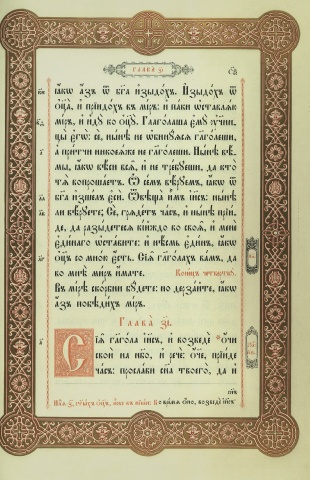 Глава̀ з҃і.
ꙗ҆́кѡ а҆́зъ ѿ бг҃а и҆зыдо́хъ. И҆зыдо́хъ ѿ
ѻ҆ц҃а̀, и҆ прїидо́хъ въ мі́ръ: и҆ па́ки ѡ҆ставлѧ́ю
мі́ръ, и҆ и҆дꙋ̀ ко ѻ҆ц҃ꙋ̀. Глаго́лаша є҆мꙋ̀ ᲂу҆чн҃ицы̀
є҆гѡ̀: сѐ, нн҃ѣ не ѡ҆бинꙋ́ѧсѧ глаго́леши,
а҆ при́тчи никоеѧ́же не глаго́леши. Нн҃ѣ вѣ́мы,
ꙗ҆́кѡ вѣ́си всѧ̑, и҆ не тре́бꙋеши, да кто̀
тѧ̀ вопроша́етъ. Ѡ҆ се́мъ вѣ́рꙋемъ, ꙗ҆́кѡ ѿ
бг҃а и҆зше́лъ є҆сѝ. Ѿвѣща̀ и҆̀мъ і҆и҃съ: нн҃ѣ
ли вѣ́рꙋете; Сѐ, грѧде́тъ ча́съ, и҆ нн҃ѣ прїи́де,
да разы́детесѧ кі́йждо во своѧ̑, и҆ менѐ
є҆ди́наго ѡ҆ста́вите: и҆ нѣ́смь є҆ди́нъ, ꙗ҆́кѡ
ѻ҆ц҃ъ со мно́ю є҆́сть. Сїѧ̑ глаго́лахъ ва́мъ, да
во мнѣ̀ ми́ръ и҆́мате.
Коне́цъ четверткꙋ̀.
Въ мі́рѣ ско́рбни бꙋ́дете: но дерза́йте, ꙗ҆́кѡ
а҆́зъ побѣди́хъ мі́ръ.
Глава̀ з҃і.
Сїѧ̑ глаго́ла і҆и҃съ, и҆ возведѐ ѻ҆́чи
своѝ на нб҃о, и҆ речѐ: ѻ҆́ч҃е, прїи́де
ча́съ: просла́ви сн҃а твоего̀, да и҆
во вре́мѧ ѻ҆́но, возведѐ і҆и҃съ